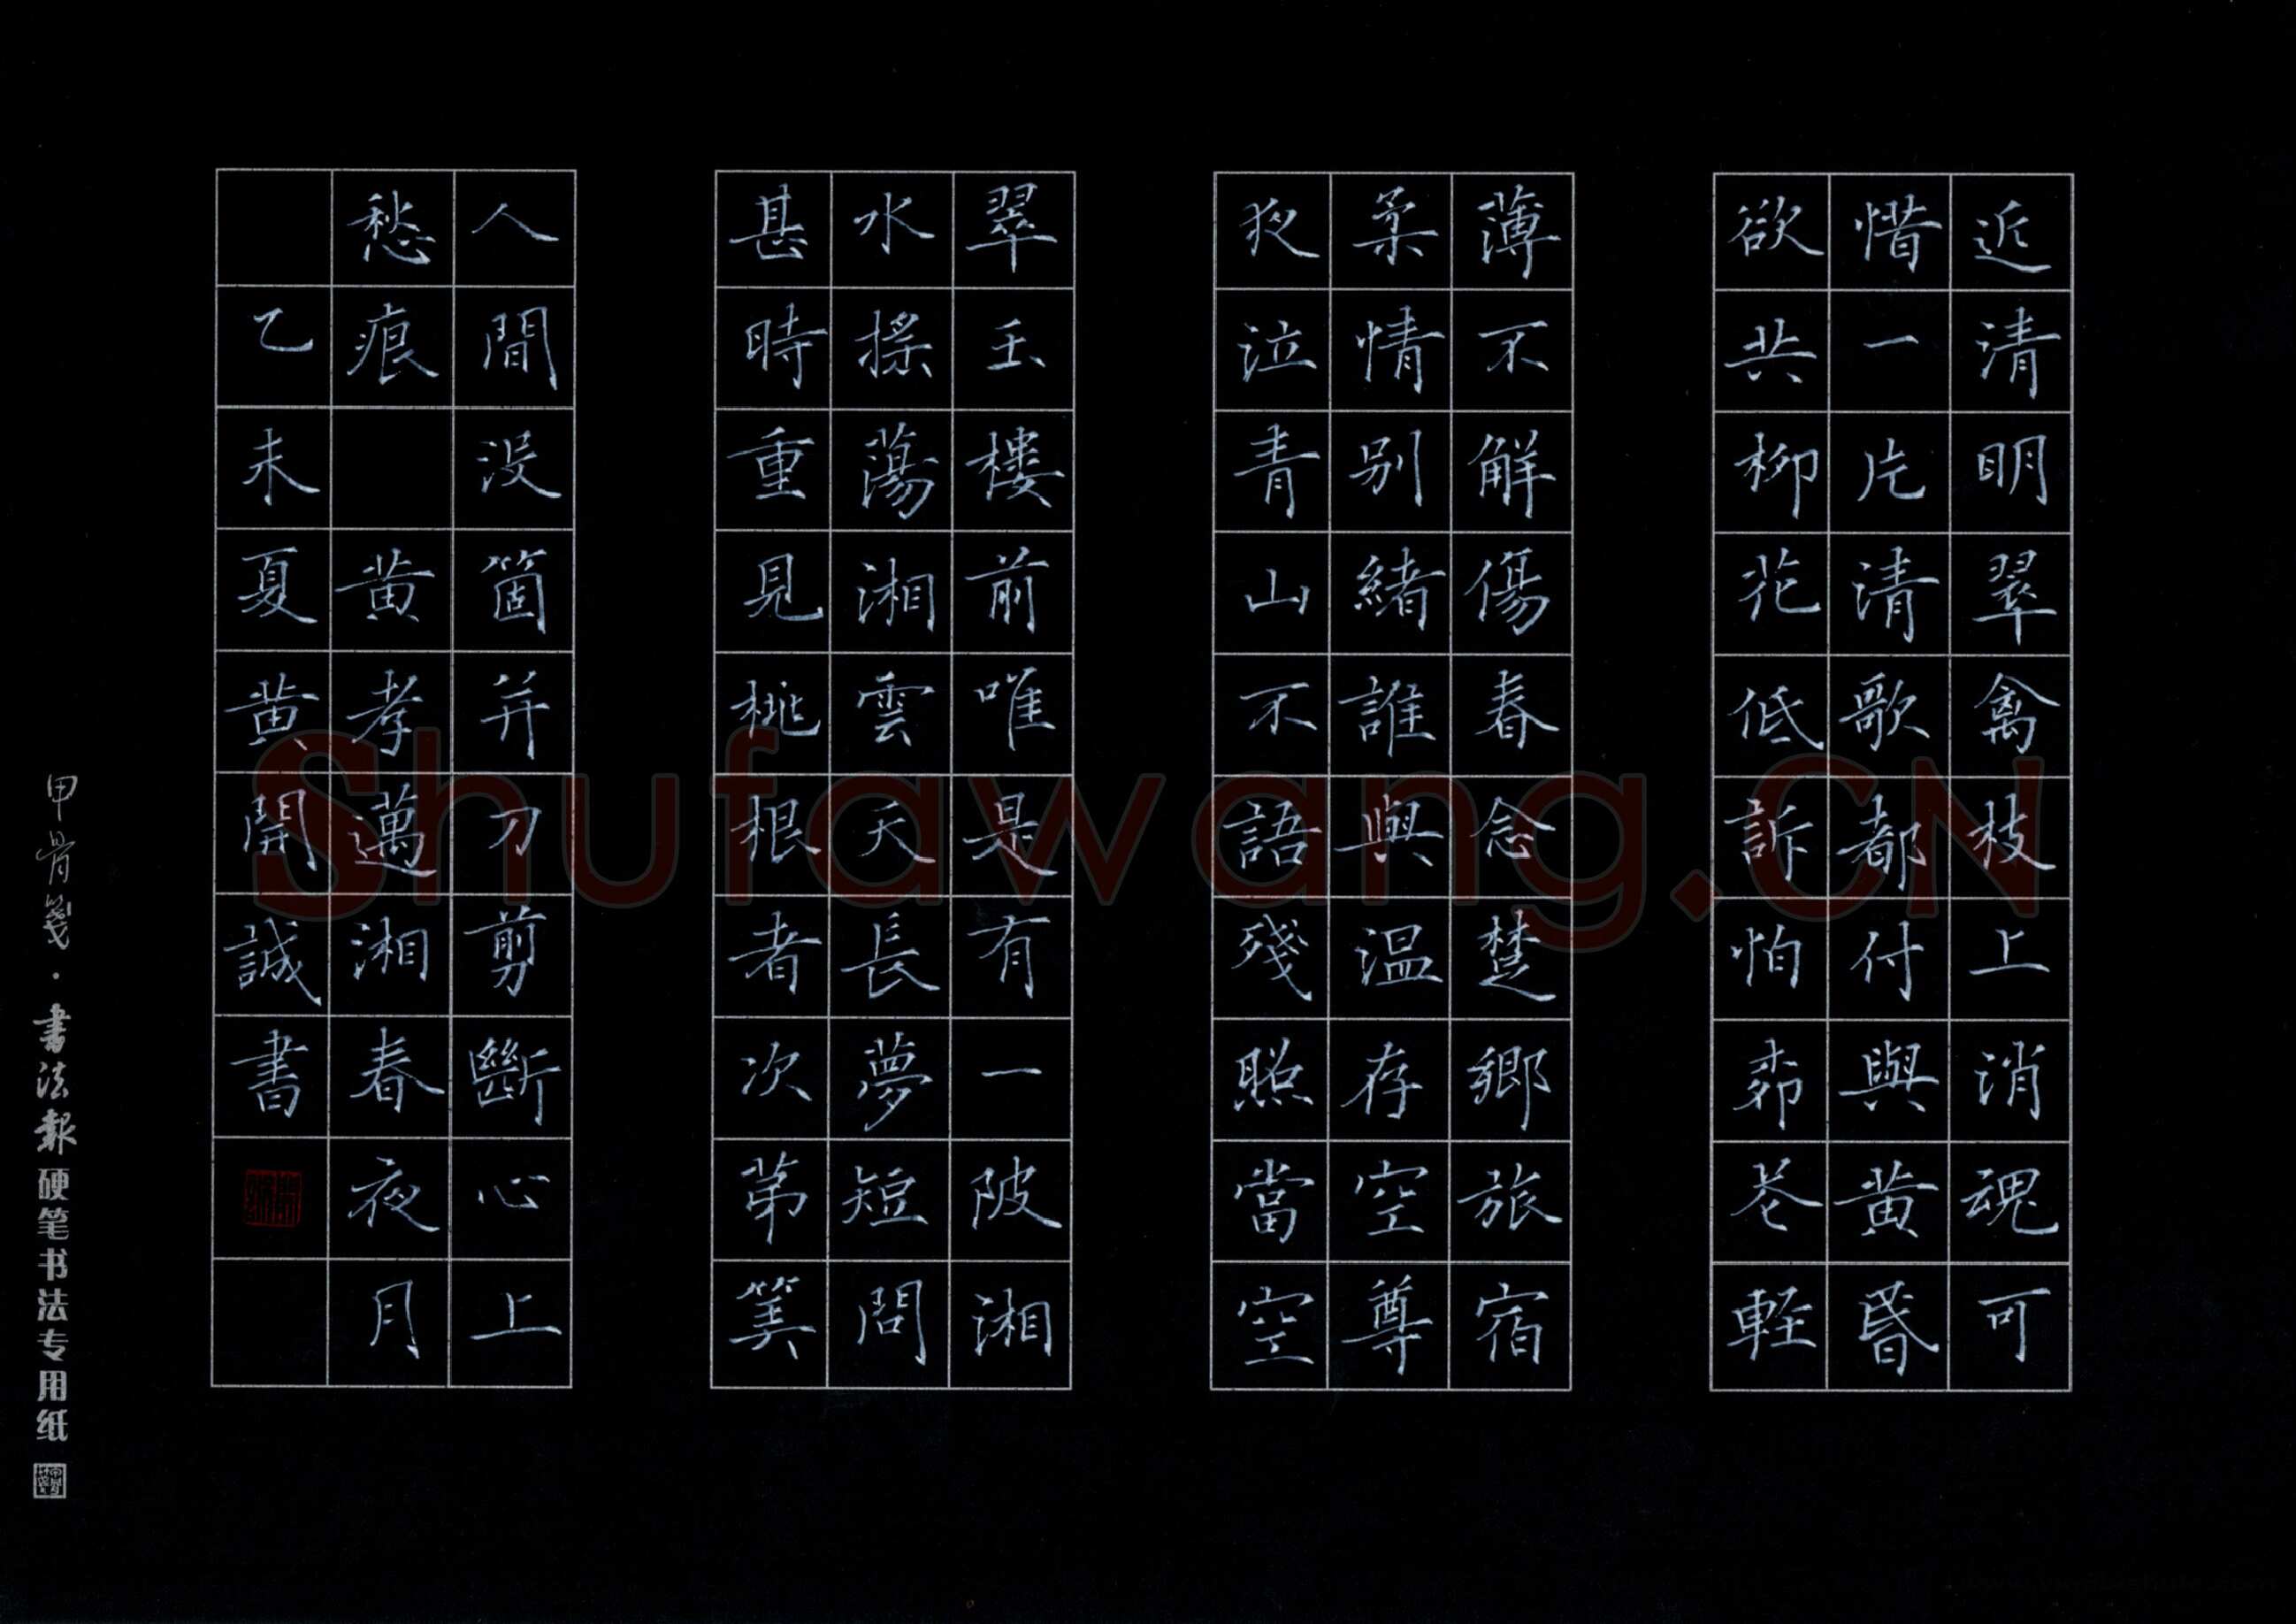 近清明翠禽枝上消魂可
惜一片清歌都付與黄昏
欲共柳花低訴怕柳花輕
薄不解傷春念楚鄉旅宿
柔情别緒誰與温存空尊
夜泣青山不語殘照當空
翠玉樓前唯是有一陂湘
水摇蕩湘雲天長夢短問
甚時重見桃根者次第筭
人間没箇并刀剪斷心上
愁痕 黄孝邁湘春夜月
乙未夏黄開誠書
甲骨箋·書法報硬笔书法专用纸
Shufawang.CN